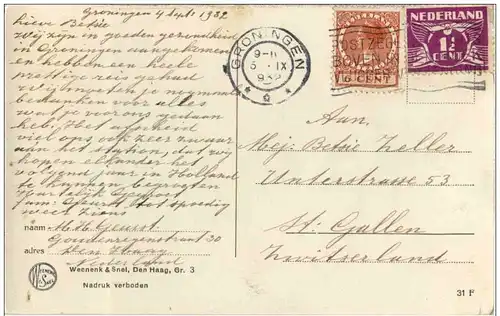 Groningen 4 Sept 1932
Lieve Betsie
Wij zijn in goeden gezondheid
in Groningen aangekomen
en hebben een heele
prettige reis gehad
Wij moeten je nogmaals
bedanken voor alles
wat je voor ons gedaan
heb. Het afscheid
viel ons ook zeer zwaar
aan het station, dat wij
hopen elkander het
volgend jaar in Holland
te kunnen begroeten
Hartelijk Gegroet
fam: Geurst tot spoedig
weer ziens
naam M. H. Geurst
Goudenregenstraat 30
adres Den Haag
Nederland
WEENENK & SNEL
Weenenk & Snel, Den Haag, Gr. 3
Nadruk verboden
GRONINGEN
9-11
5 IX
193
POSTZEG
BOVEN
6 CENT
NEDERLAND
1½
CENT
Aan
Mej: Betsie Zeller
Unterstrasse 53
St. Gallen
Zwitserland
31 F